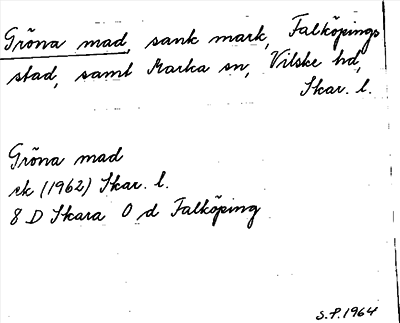 Gröna mad, sank mark, Falköpings
stad, samt Marka sn, Vilske hd,
Skar. l.
Gröna mad
ek (1962) Skar. l.
8 D Skara O d Falköping
S.P. 1964